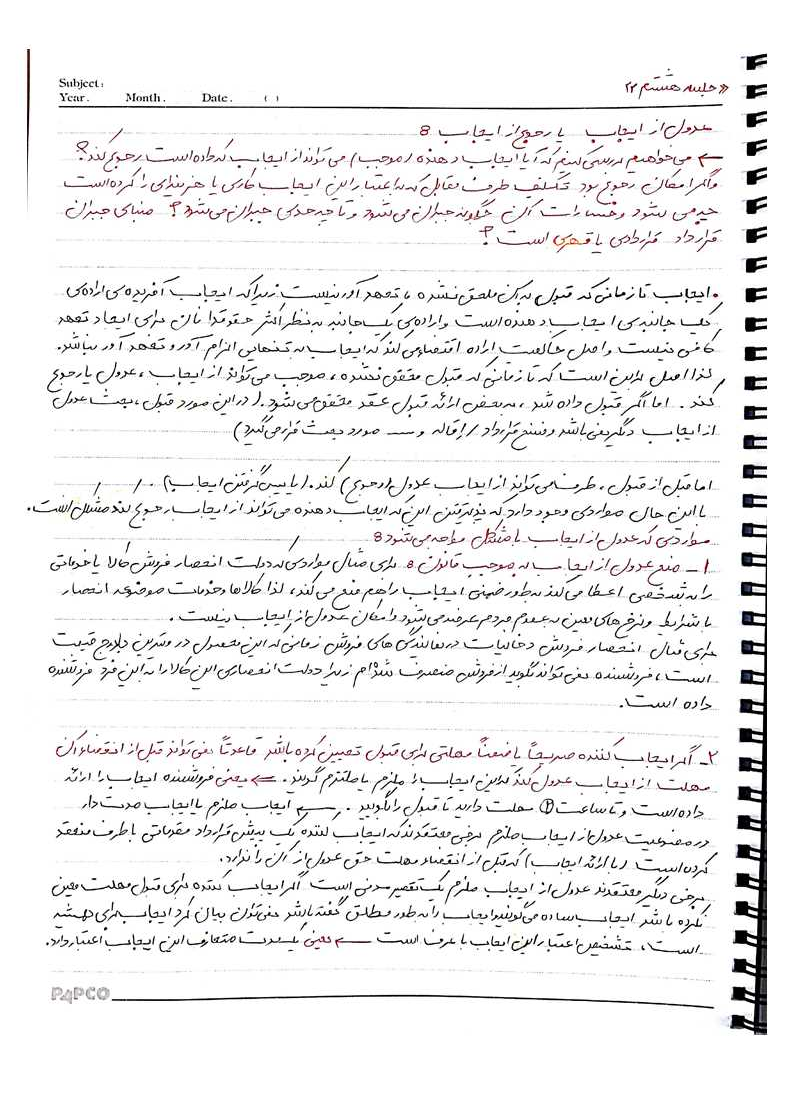 Subject:
Year. Month. Date. ( )
« جلسه هشتم ۲۲
عدول از ایجاب یا رجوع از ایجاب 8
← می‌خواهیم بررسی کنیم که آیا ایجاب دهنده (موجب) می‌تواند از ایجاب که داده است رجوع کند؟
و اگر امکان رجوع بود تکلیف طرف مقابل که به اعتبار این ایجاب کاری یا هزینه‌ای را کرده است
چه می شود و خسارات آن چگونه جبران می‌شود و تا چه حدی جبران می‌شود؟ مبنای جبران
قرارداد قراردادی یا قهری است؟
• ایجاب تا زمانی که قبول به آن ملحق نشده، تعهد آور نیست زیرا که ایجاب آفریده‌ی اراده‌ی
یک جانبه‌ی ایجاب دهنده است و اراده‌ی یک جانبه به نظر اکثر حقوقدانان برای ایجاد تعهد
کافی نیست و اصل حاکمیت اراده اقتضا می کند که ایجاب به تنهایی الزام آور و تعهد آور نباشد.
لذا اصل بر این است که تا زمانی که قبول محقق نشده، موجب می‌تواند از ایجاب، عدول یا رجوع
کند. اما اگر قبول داده شد، به محض ارائه قبول عقد محقق می‌شود. (در این مورد قبول، بحث عدول
از ایجاب دیگر نمی باشد و فسخ قرارداد / اقاله و ... مورد بحث قرار می‌گیرد)
اما قبل از قبول، طرف می تواند از ایجاب عدول (رجوع) کند. (با پس گرفتن ایجاب).
با این حال مواردی وجود دارد که پذیرفتن این که ایجاب دهنده می تواند از ایجاب رجوع کند مشکل است.
مواردی که عدول از ایجاب با مشکل مواجه می شود 8
۱ـ منع عدول از ایجاب به موجب قانون 8 برای مثال مواردی که دولت انحصار فروش کالا یا خدماتی
را به شخصی اعطا می‌کند به طور ضمنی ایجاب را هم منع می کند، لذا کالاها و خدمات موضوعه انحصار
با شرایط و نرخ های معین به عموم مردم عرضه می شود و امکان عدول از ایجاب نیست.
برای مثال انحصار فروش دخانیات در نمایندگی های فروش زمانی که این محصول در ویترین با درج قیمت
است، فروشنده نمی تواند بگوید از فروش منصرف شده‌ام زیرا دولت انحصاری این کالا را به این فرد فروشنده
داده است.
۲ـ اگر ایجاب کننده صریحاً یا ضمناً مهلتی برای قبول تعیین کرده باشد قاعدتاً نمی تواند قبل از انقضاء آن
مهلت از ایجاب عدول کند که این ایجاب را ملزم یا ملتزم گویند. ← یعنی فروشنده ایجاب را ارائه
داده است و تا ساعت ۲ مهلت دارید تا قبول را بگویید. ← ایجاب ملزم یا ایجاب مدت دار
در ممنوعیت عدول از ایجاب ملزم برخی معتقدند که ایجاب کننده یک پیش قرارداد مقدماتی با طرف منعقد
کرده است (با ارائه ایجاب) که قبل از انقضاء مهلت حق عدول از آن را ندارد.
برخی دیگر معتقدند عدول از ایجاب ملزم یک تقصیر مدنی است. اگر ایجاب کننده برای قبول مهلت معین
نکرده باشد ایجاب ساده می‌گویند. ایجاب را به طور مطلق گفته باشد نمی‌توان بیان کرد ایجاب برای همیشه
است، تشخیص اعتبار این ایجاب با عرف است ← یعنی یک مدت متعارف این ایجاب اعتبار دارد.
PAPCO